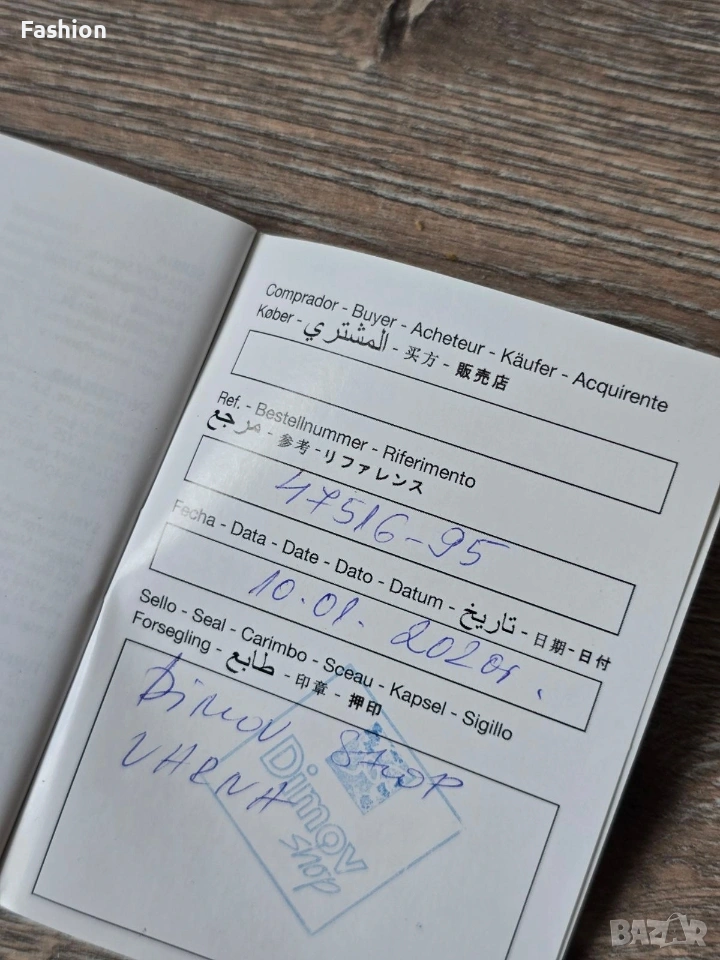 Fashion
Comprador - Buyer - Acheteur - Käufer - Acquirente
Køber - المشتري - 买方 - 販売店
Ref. - Bestellnummer - Riferimento
مرجع - 参考 - リファレンス
47516-95
Fecha - Data - Date - Dato - Datum - تاريخ - 日期 - 日付
10.01.2020г.
Sello - Seal - Carimbo - Sceau - Kapsel - Sigillo
Forsegling - طابع - 印章 - 押印
Dimov Shop
VARNA
Dimov
shop
BAZAR